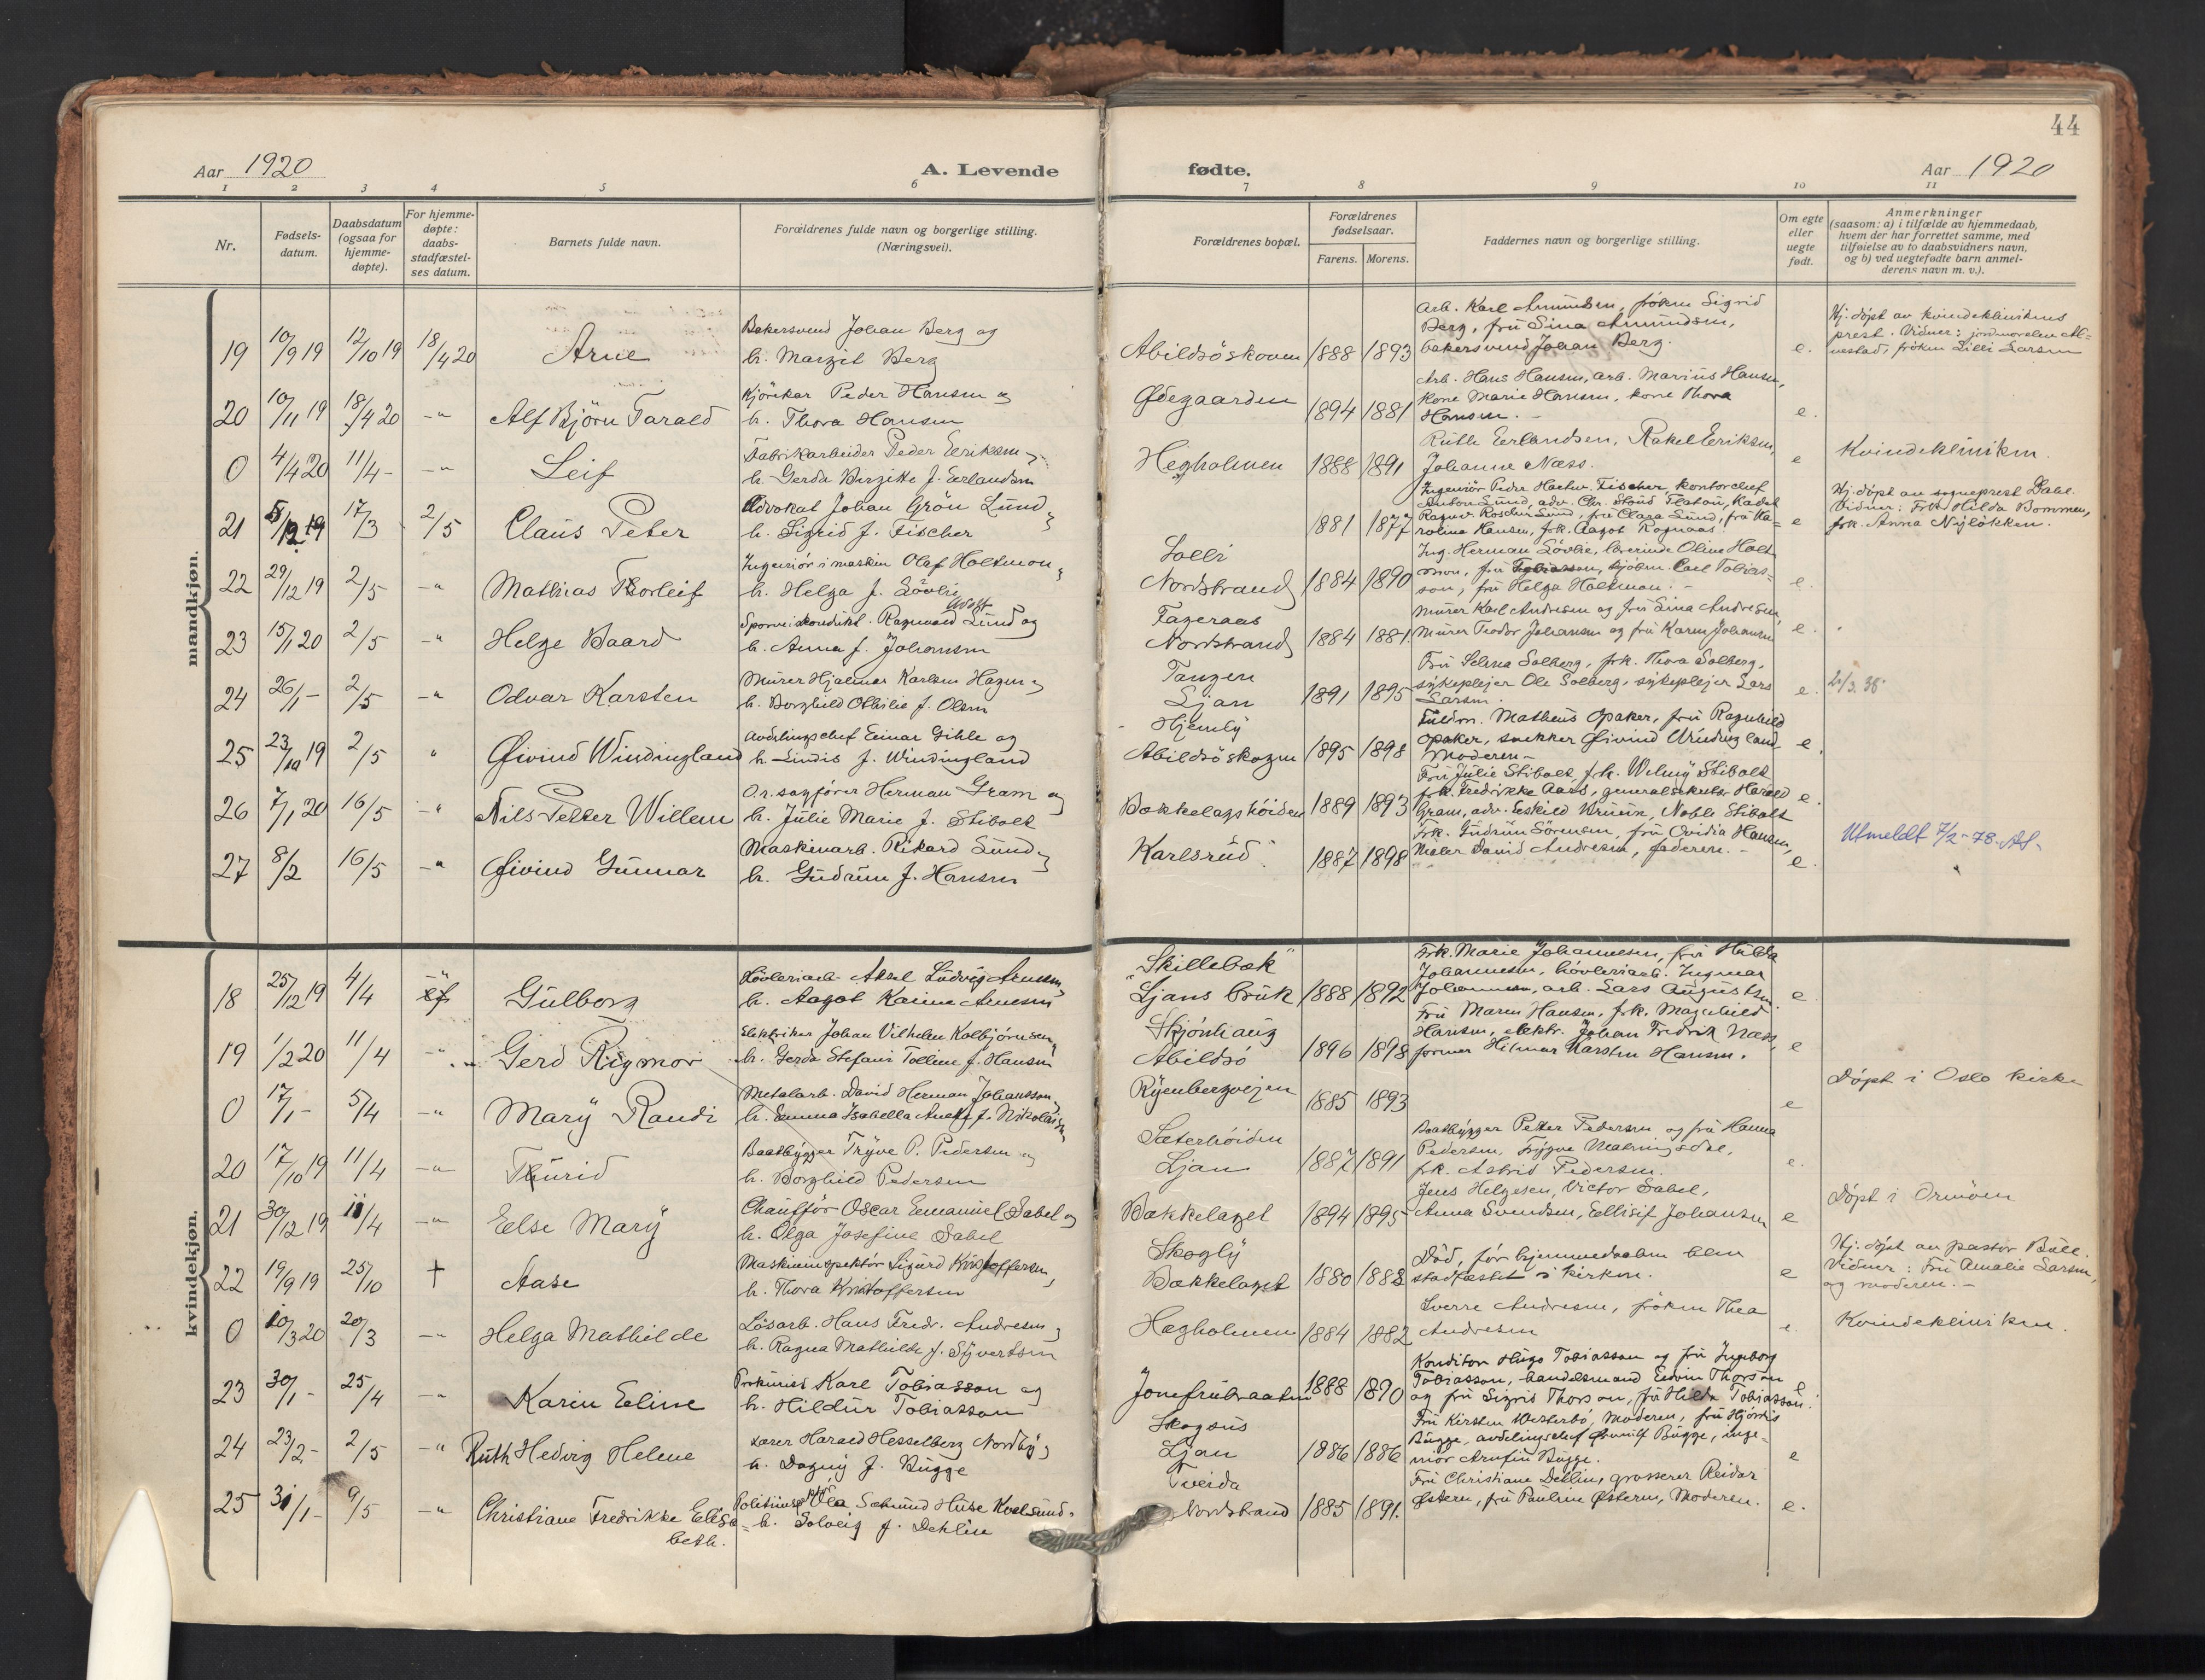 44
Aar 1920
A. Levende
fødte.
Aar 1920
1 2 3 4 5 6 7 8 9 10 11
Nr.
Fødsels-
datum.
Daabsdatum
(ogsaa for
hjemme-
døpte).
For hjemme-
døpte:
daabs-
stadfæstel-
ses datum.
Barnets fulde navn.
Forældrenes fulde navn og borgerlige stilling.
(Næringsvei).
Forældrenes bopæl.
Forældrenes
fødselsaar.
Farens. Morens.
Faddernes navn og borgerlige stilling.
Om egte
eller
uegte
født.
Anmerkninger
(saasom: a) i tilfælde av hjemmedaab,
hvem der har forrettet samme, med
tilføielse av to daabsvidners navn,
og b) ved uegtefødte barn anmel-
derens navn m. v.).
mandkjøn.
19 10/9 19 12/10 19 18/4 20 Arne
Bakersvend Johan Berg og
h. Margit Berg
Abildsöskoven 1888 1893
Arb. Karl Amundsen, fröken Sigrid
Berg, fru Sina Amundsen,
bakersvend Johan Berg.
e.
Hj. döpt av kvindeklinikens
prest. Vidner: jordmorelev
fröken Lilli Larsen
20 10/11 19 18/4 20 -"- Alf Björn Tarald
Kjörekar Peder Hansen og
h. Thora Hansen
Ødegaarden 1894 1881
Arb. Hans Hansen, arb. Marius Hansen,
kone Marie Hansen, kone Thora
Hansen. -
e.
0 4/4 20 11/4 - -"- Leif
Fabrikarbeider Peder Eeriksen
h. Gerda Birgitte f. Eerlandsen
Hegholmen 1888 1891
Ruth Eerlandsen, Rakel Eeriksen,
Johanne Næss.
e
Kvindekliniken.
21 5/12 19 17/3 2/5 Claus Peter
Advokat Johan Grön Lund
h. Sigrid f. Fischer
1881 1877
Ingeniör Peder Fischer, kontorchef
Anton Lund, adv. Chr. Platou, Kadet
Lund, fru Clara Lund, fru Ka=
rolina Hansen, frk. Aagot Rognaas.
e
Hj. döpt av sogneprest Dahl.
Vidner: Frk. Hilda Bommen,
frk. Anna Nylökken.
22 29/12 19 2/5 -" Mathias Thorleif
Ingeniör i maskin Olaf Holtmon
h. Helga f. Lövlie
Solli
Nordstrand 1884 1890
Ing. Herman Lövlie, lærerinde Oline Holt
mon, fru Tobiassen, Carl Tobias=
son, fru Helga Holtmon. -
e.
23 15/1 20 2/5 -" Helge Baard
Sporveiskondukt. Ragnvald Lund og
h. Anna f. Johansen
Fageraas
Nordstrand 1884 1881
Murer Karl Andresen og fru Lina Andresen,
Murer Teodor Johansen og fru Karen Johansen
e.
24 26/1 - 2/5 -" Odvar Karsten
Murer Hjalmar Karlsen Hagen
h. Borghild Othilie f. Olsen
Tangen
Ljan 1891 1895
Fru Selma Solberg, frk. Thora Solberg,
sykepleier Ole Solberg, sykepleier Lars
Larsen.
e.
25 23/10 19 2/5 " Øivind Windingland
Avdelingschef Einar Gihle og
h. Lindis f. Windingland
Hjemly
Abildsöskogen 1895 1898
Fuldm. Matheus Opaker, fru Ragnhild
Opaker, snekker Øivind Windingland,
Moderen -
e.
26 7/1 20 16/5 -" Nils Petter Willem
O.r. sagförer Herman Gram og
h. Julie Marie f. Stibolt
Bækkelagshöiden 1889 1893
Fru Julie Stibolt, frk. Wilmy Stibolt
frk. Fredrikke Aars, generalsekretær Harald
Gram, adv. Eeskild Bruun, Noble Stibolt
e.
27 8/2 16/5 -" Øivind Gunnar
Maskinarb. Rikard Lund
h. Gudrun f. Hansen
Karlsrud. 1887 1898
Frk. Gudrun Sörensen, fru Ovidia Hansen,
Maler David Andresen, faderen. -
e.
Utmeldt 7/2-78.
kvindekjøn.
18 25/12 19 4/4 Gulborg
Hövleriarb. Aksel Ludvig Arnesen,
h. Aagot Karine Arnesen
"Skillebæk"
Ljans bruk 1888 1892
Frk. Marie Johannesen, fru Hulda
Johannesen, hövleriarb. Ingmar
Johannesen, arb. Lars Augustsen.
e
19 1/2 20 11/4 -"- Gerd Rigmor
Elektriker Johan Vilhelm Kolbjörnsen
h. Gerda Stefani Tolline f. Hansen
Skjönhaug
Abildsö 1896 1898
Fru Maren Hansen, frk. Magnhild
Hansen, elektr. Johan Fredrik Næss,
former Hilmar Karsten Hansen.
e
0 17/1 - 5/4 -"- Mary Randi
Metalarb. David Herman Johansson
h. Emma Isabella f. Nikolaisen
Ryenbergveien 1885 1893
e
Döpt i Oslo kirke
20 17/10 19 11/4 -"- Thurid
Baatbygger Tryve P. Pedersen og
h. Borghild Pedersen
Sæterhöiden
Ljan 1887 1891
Baatbygger Petter Pedersen og fru Hanna
Pedersen, Trygve
frk. Astrid Pedersen.
e.
21 30/12 19 11/4 -"- Eelse Mary
Chaufför Oscar Emanuel Sabel og
h. Olga Josefine Sabel
Bækkelaget 1894 1895
Jens Helgesen, Victor Sabel,
Anna Svendsen, Eellisif Johansen
e
Döpt i Ormöen
22 19/9 19 25/10 † Aase
Maskininspektör Sigurd Kristoffersen,
h. Thora Kristoffersen
Skogly
Bækkelaget 1880 1883
Död, för hjemmedaaben blev
stadfæstet i kirken.
e
Hj. döpt av pastor Bull.
Vidner: Fru Amalie Larsen,
og moderen. -
0 10/3 20 20/3 -"- Helga Mathilde
Lösarb. Hans Fredr. Andresen
h. Ragna Mathilde f. Syvertsen
Hegholmen 1884 1882
Sverre Andresen, fröken Thea
Andresen
e.
Kvindekliniken.
23 30/1 - 25/4 -"- Karin Eeline
Prokurist Karl Tobiasson og
h. Hildur Tobiasson
Jomfrubraaten 1888 1890
Konditor Hugo Tobiasson og fru Ingeborg
Tobiasson, handelsmand Edvin Thorson
og fru Sigrid Thorson, fru Hilda Tobiasson.
e
24 23/2 - 2/5 -" Ruth Hedvig Helene
Lærer Harald Hesselberg Nordby
h. Dagny f. Bugge
Skoghus
Ljan 1886 1886
Fru Kirsten Westerbö, Moderen, fru Hjördis
Bugge, avdelingschef Ørnulf Bugge, inge=
niör Arnfin Bugge.
e
25 31/1 - 9/5 -" Christiane Fredrikke Elisa=
beth.
Ola Sæmund Huse Kvelsund
h. Solveig f. Dehlin
Tveida
Nordstrand 1885 1891.
Fru Christiane Dehlin, grosserer Reidar
Østern, fru Pauline Østern, Moderen.
e.